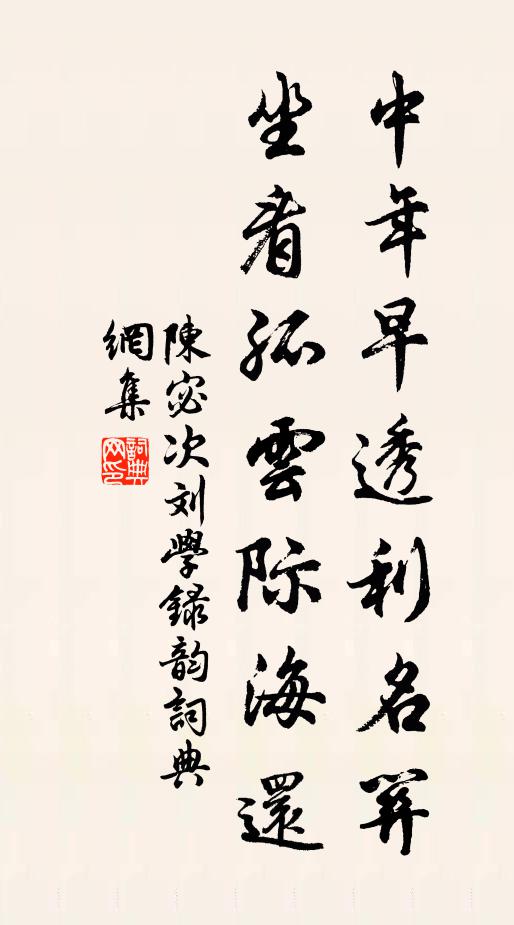 中年早透利名關
坐看孤雲际海還
陳宓次刘學録韵詞典
網集
詞典
网印